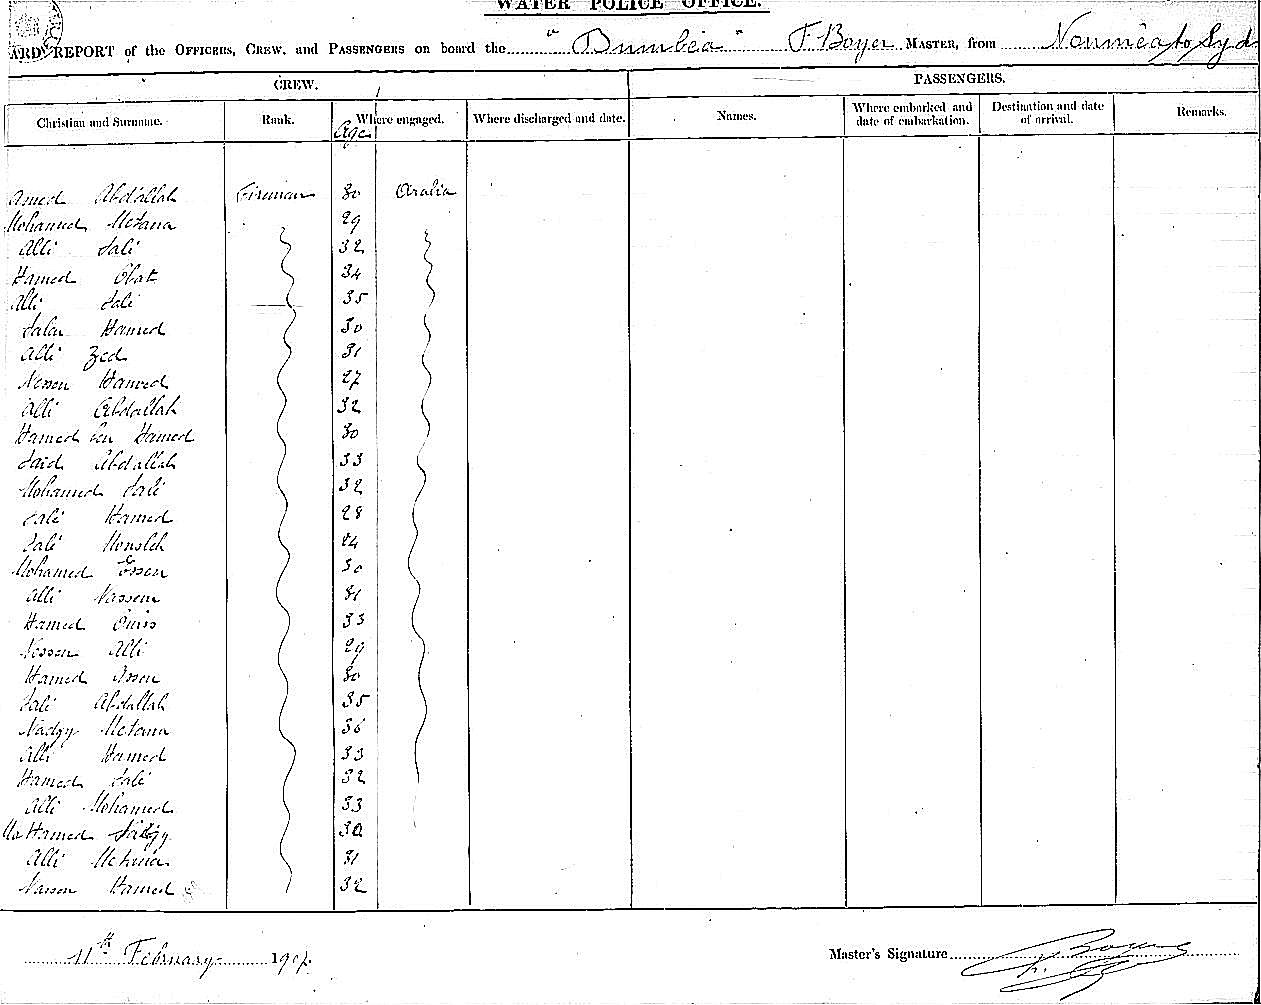 WATER POLICE OFFICE.
REPORT of the OFFICERS, CREW, and PASSENGERS on board the "Dumbéa" F. Boyer MASTER, from Nouméa to Syd
CREW. PASSENGERS.
Christian and Surname. Rank. Age Where engaged. Where discharged and date. Names. Where embarked and date of embarkation. Destination and date of arrival. Remarks.
Amed Abdallah Fireman 30 Arabia
Mohamed Metana 29
Alli Sali 32
Hamed Obat 34
Alli Sali 35
Salu Hamed 30
Alli Zed 31
Nessen Hamed 27
Alli Abdallah 32
Hamed ben Hamed 30
Said Abdallah 33
Mohamed Sali 32
Sali Hamed 28
Sali 24
Mohamed Essen 30
Alli Nassem 31
Hamed 33
Nessen Alli 29
Hamed Issen 30
Sali Abdallah 35
Nadgy Metana 36
Alli Hamed 33
Hamed Sali 32
Alli Mohamed 33
Mohamed 30
Alli 31
Nassen Hamed 32
11th February 1907.
Master's Signature